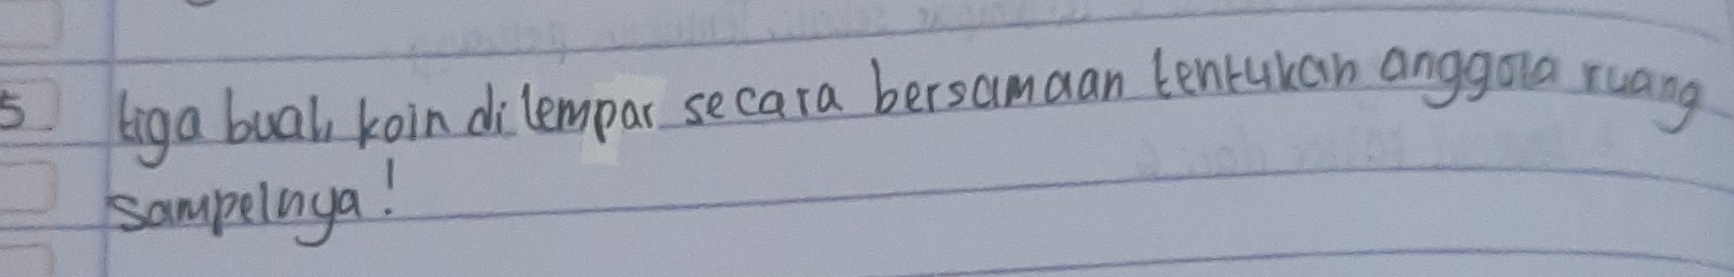 5 tiga buah koin di lempar secara bersamaan tentukan anggota ruang
sampelnya!